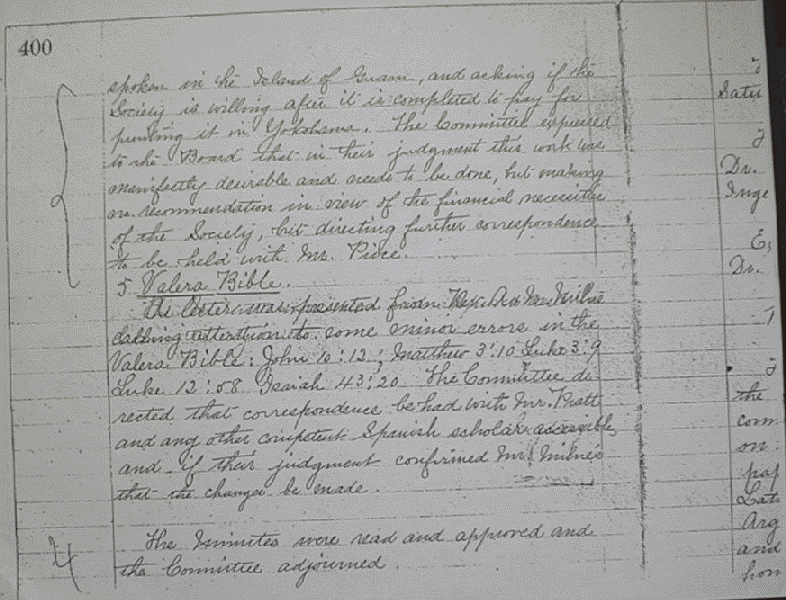 400
spoken in the Island of Guam, and asking if the
Society is willing after it is completed to pay for
printing it in Yokohama. The Committee expressed
to the Board that in their judgment this work was
manifestly desirable and needs to be done, but making
no recommendation in view of the financial necessities
of the Society, but directing further correspondence
to be held with Mr.
5 Valera Bible.
A letter was presented from Rev. Milne
calling attention to some minor errors in the
Valera Bible: John 10:12; Matthew 3:10 Luke 3:9
Luke 12:58 Isaiah 43:20 The Committee di
rected that correspondence be had with Mr. Pratt
and any other competent Spanish scholar accessible,
and if their judgment confirmed Mr. Milne's
that the changes be made.
The Minutes were read and approved and
the Committee adjourned
Satu
Dr.
Inge
Dr.
the
com
on
pap
Arg
and
hon